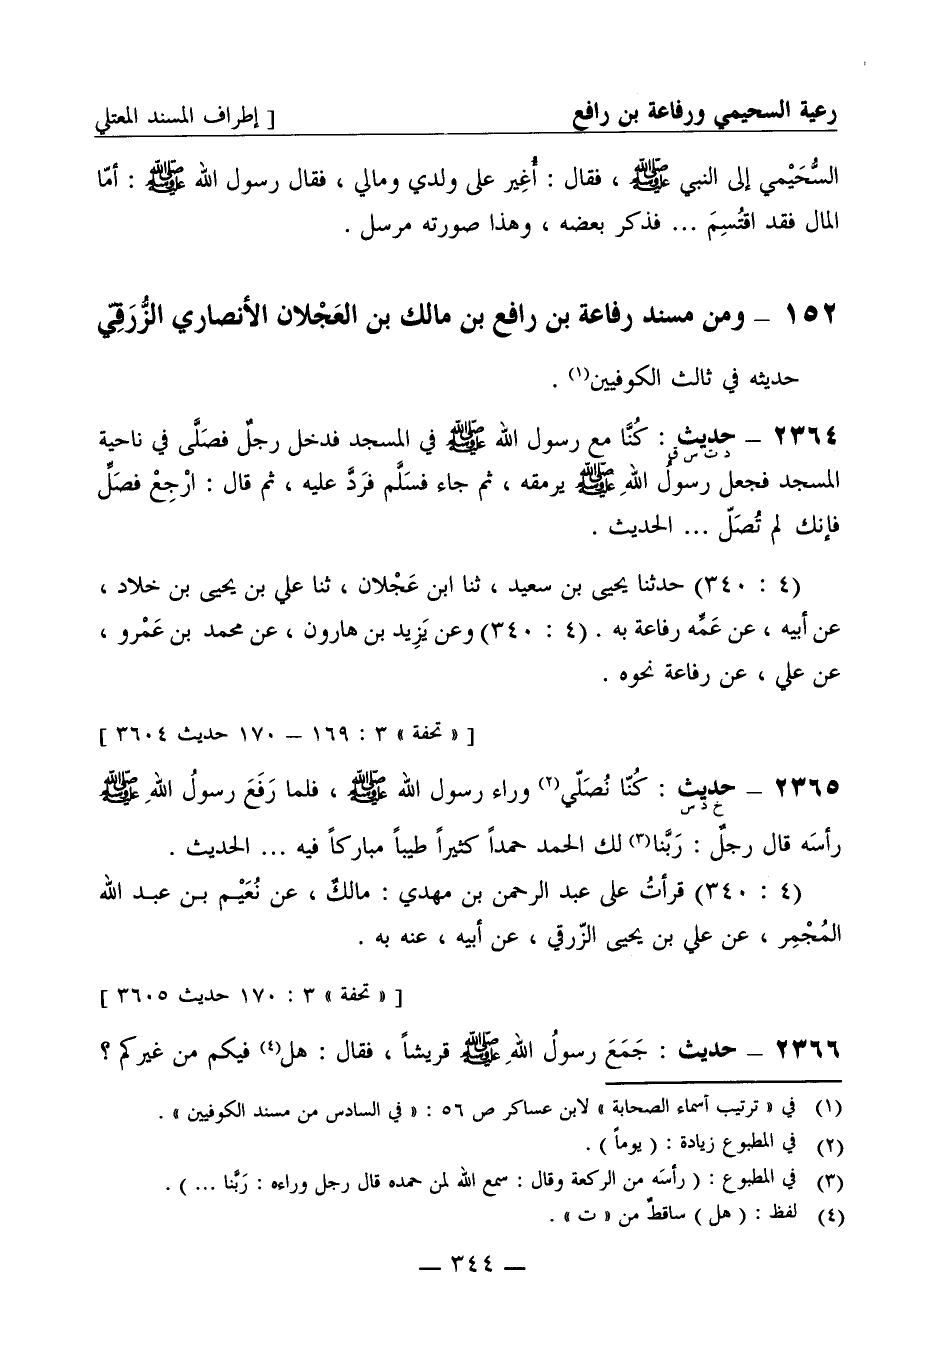 رعية السحيمي ورفاعة بن رافع [ إطراف المسند المعتلي
السُّحَيْمي إلى النبي ﷺ ، فقال : أُغِير على ولدي ومالي ، فقال رسول الله ﷺ : أمّا
المال فقد اقتُسِمَ ... فذكر بعضه ، وهذا صورته مرسل .
١٥٢ – ومن مسند رفاعة بن رافع بن مالك بن العَجْلان الأنصاري الزُّرَقِيّ
حديثه في ثالث الكوفيين(١) .
٢٣٦٤ – حديث : كُنَّا مع رسول الله ﷺ في المسجد فدخل رجلٌ فصَلَّى في ناحية
د ت س ق
المسجد فجعل رسولُ اللهِ ﷺ يرمقه ، ثم جاء فسَلَّم فرَدَّ عليه ، ثم قال : ارْجِعْ فصَلِّ
فإنك لم تُصَلّ ... الحديث .
(٤ : ٣٤٠) حدثنا يحيى بن سعيد ، ثنا ابن عَجْلان ، ثنا علي بن يحيى بن خلاد ،
عن أبيه ، عن عَمِّه رفاعة به . (٤ : ٣٤٠) وعن يَزِيد بن هارون ، عن محمد بن عَمْرو ،
عن علي ، عن رفاعة نحوه .
[ « تحفة » ٣ : ١٦٩ – ١٧٠ حديث ٣٦٠٤ ]
٢٣٦٥ – حديث : كُنّا نُصَلّي(٢) وراء رسول الله ﷺ ، فلما رَفَعَ رسولُ اللهِ ﷺ
خ د س
رأسَه قال رجلٌ : رَبَّنا(٣) لك الحمد حمداً كثيراً طيباً مباركاً فيه ... الحديث .
(٤ : ٣٤٠) قرأتُ على عبد الرحمن بن مهدي : مالكٌ ، عن نُعَيْم بن عبد الله
المُجْمِر ، عن علي بن يحيى الزّرقي ، عن أبيه ، عنه به .
[ « تحفة » ٣ : ١٧٠ حديث ٣٦٠٥ ]
٢٣٦٦ – حديث : جَمَعَ رسولُ اللهِ ﷺ قريشاً ، فقال : هل(٤) فيكم من غيركم ؟
(١) في « ترتيب أسماء الصحابة » لابن عساكر ص ٥٦ : « في السادس من مسند الكوفيين » .
(٢) في المطبوع زيادة : ( يوماً ) .
(٣) في المطبوع : ( رأسَه من الركعة وقال : سمع الله لمن حمده قال رجل وراءه : رَبَّنا ... ) .
(٤) لفظ : ( هل ) ساقطٌ من « ت » .
– ٣٤٤ –